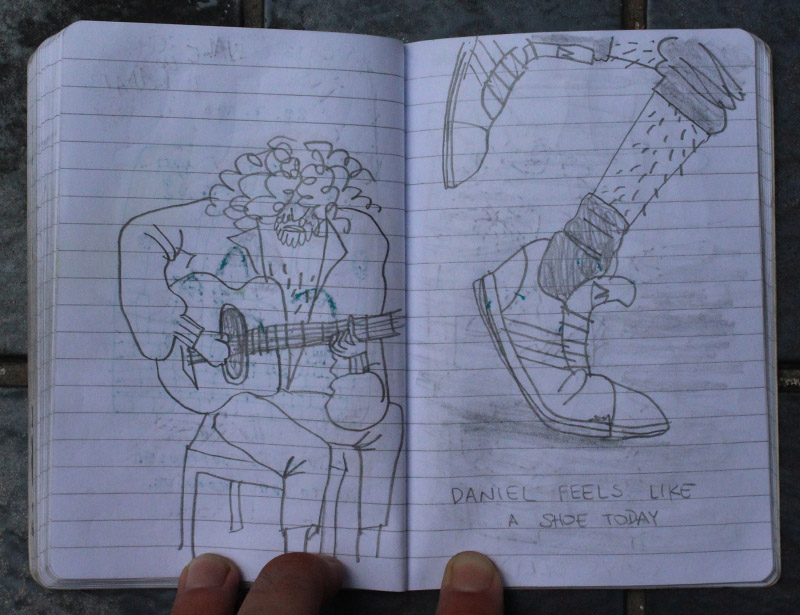 DANIEL FEELS LIKE
A SHOE TODAY